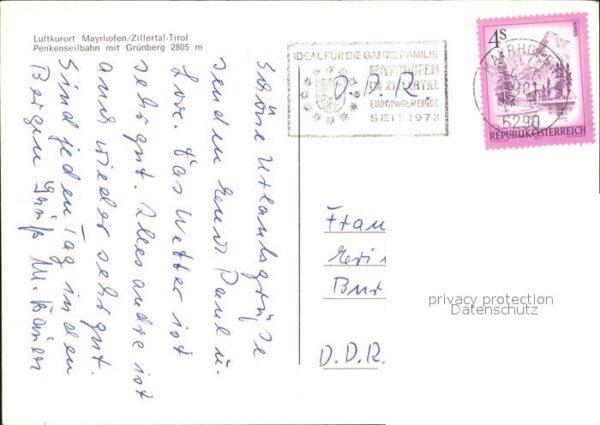 Luftkurort Mayrhofen/Zillertal-Tirol
Penkenseilbahn mit Grünberg 2805 m
Schöne Urlaubsgrüße
senden Euch Paul u.
Lore. Das Wetter ist
sehr gut. Alles andre ist
auch wieder sehr gut.
Sind jeden Tag in den
Bergen Grüß M.
IDEAL FÜR DIE GANZE FAMILIE
MAYRHOFEN
IM ZILLERTAL
EUROPAGEMEINDE
SEIT 1973
D.D.R
4S
MAYRHOFEN
6290
REPUBLIK ÖSTERREICH
Frau
Bur
D.D.R.
privacy protection
Datenschutz